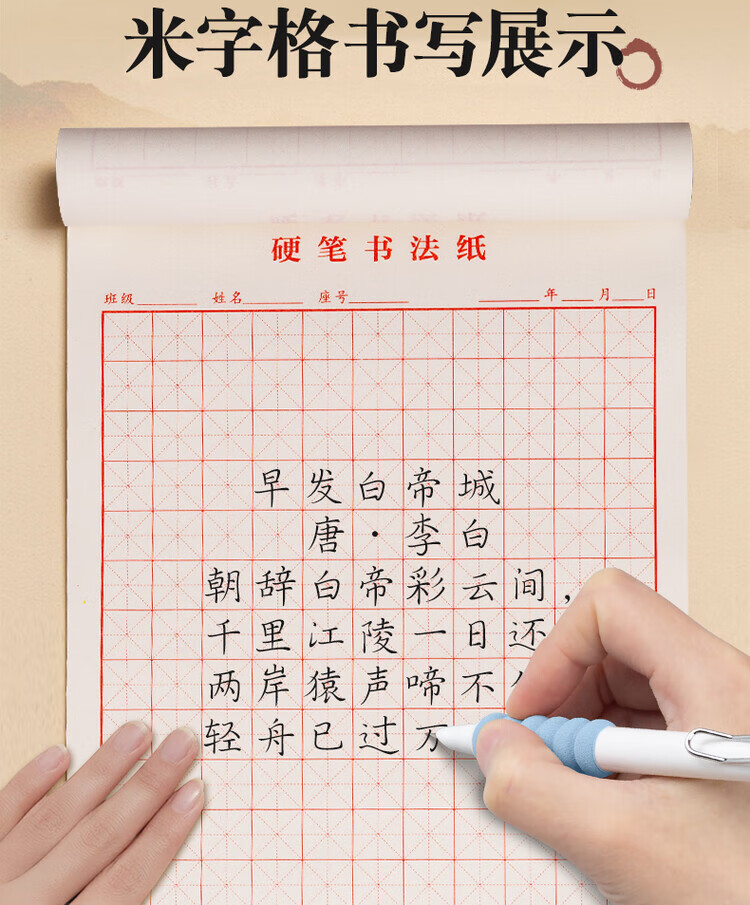 米字格书写展示
硬笔书法纸
班级 姓名 座号 年 月 日
早发白帝城
唐·李白
朝辞白帝彩云间，
千里江陵一日还
两岸猿声啼不
轻舟已过万